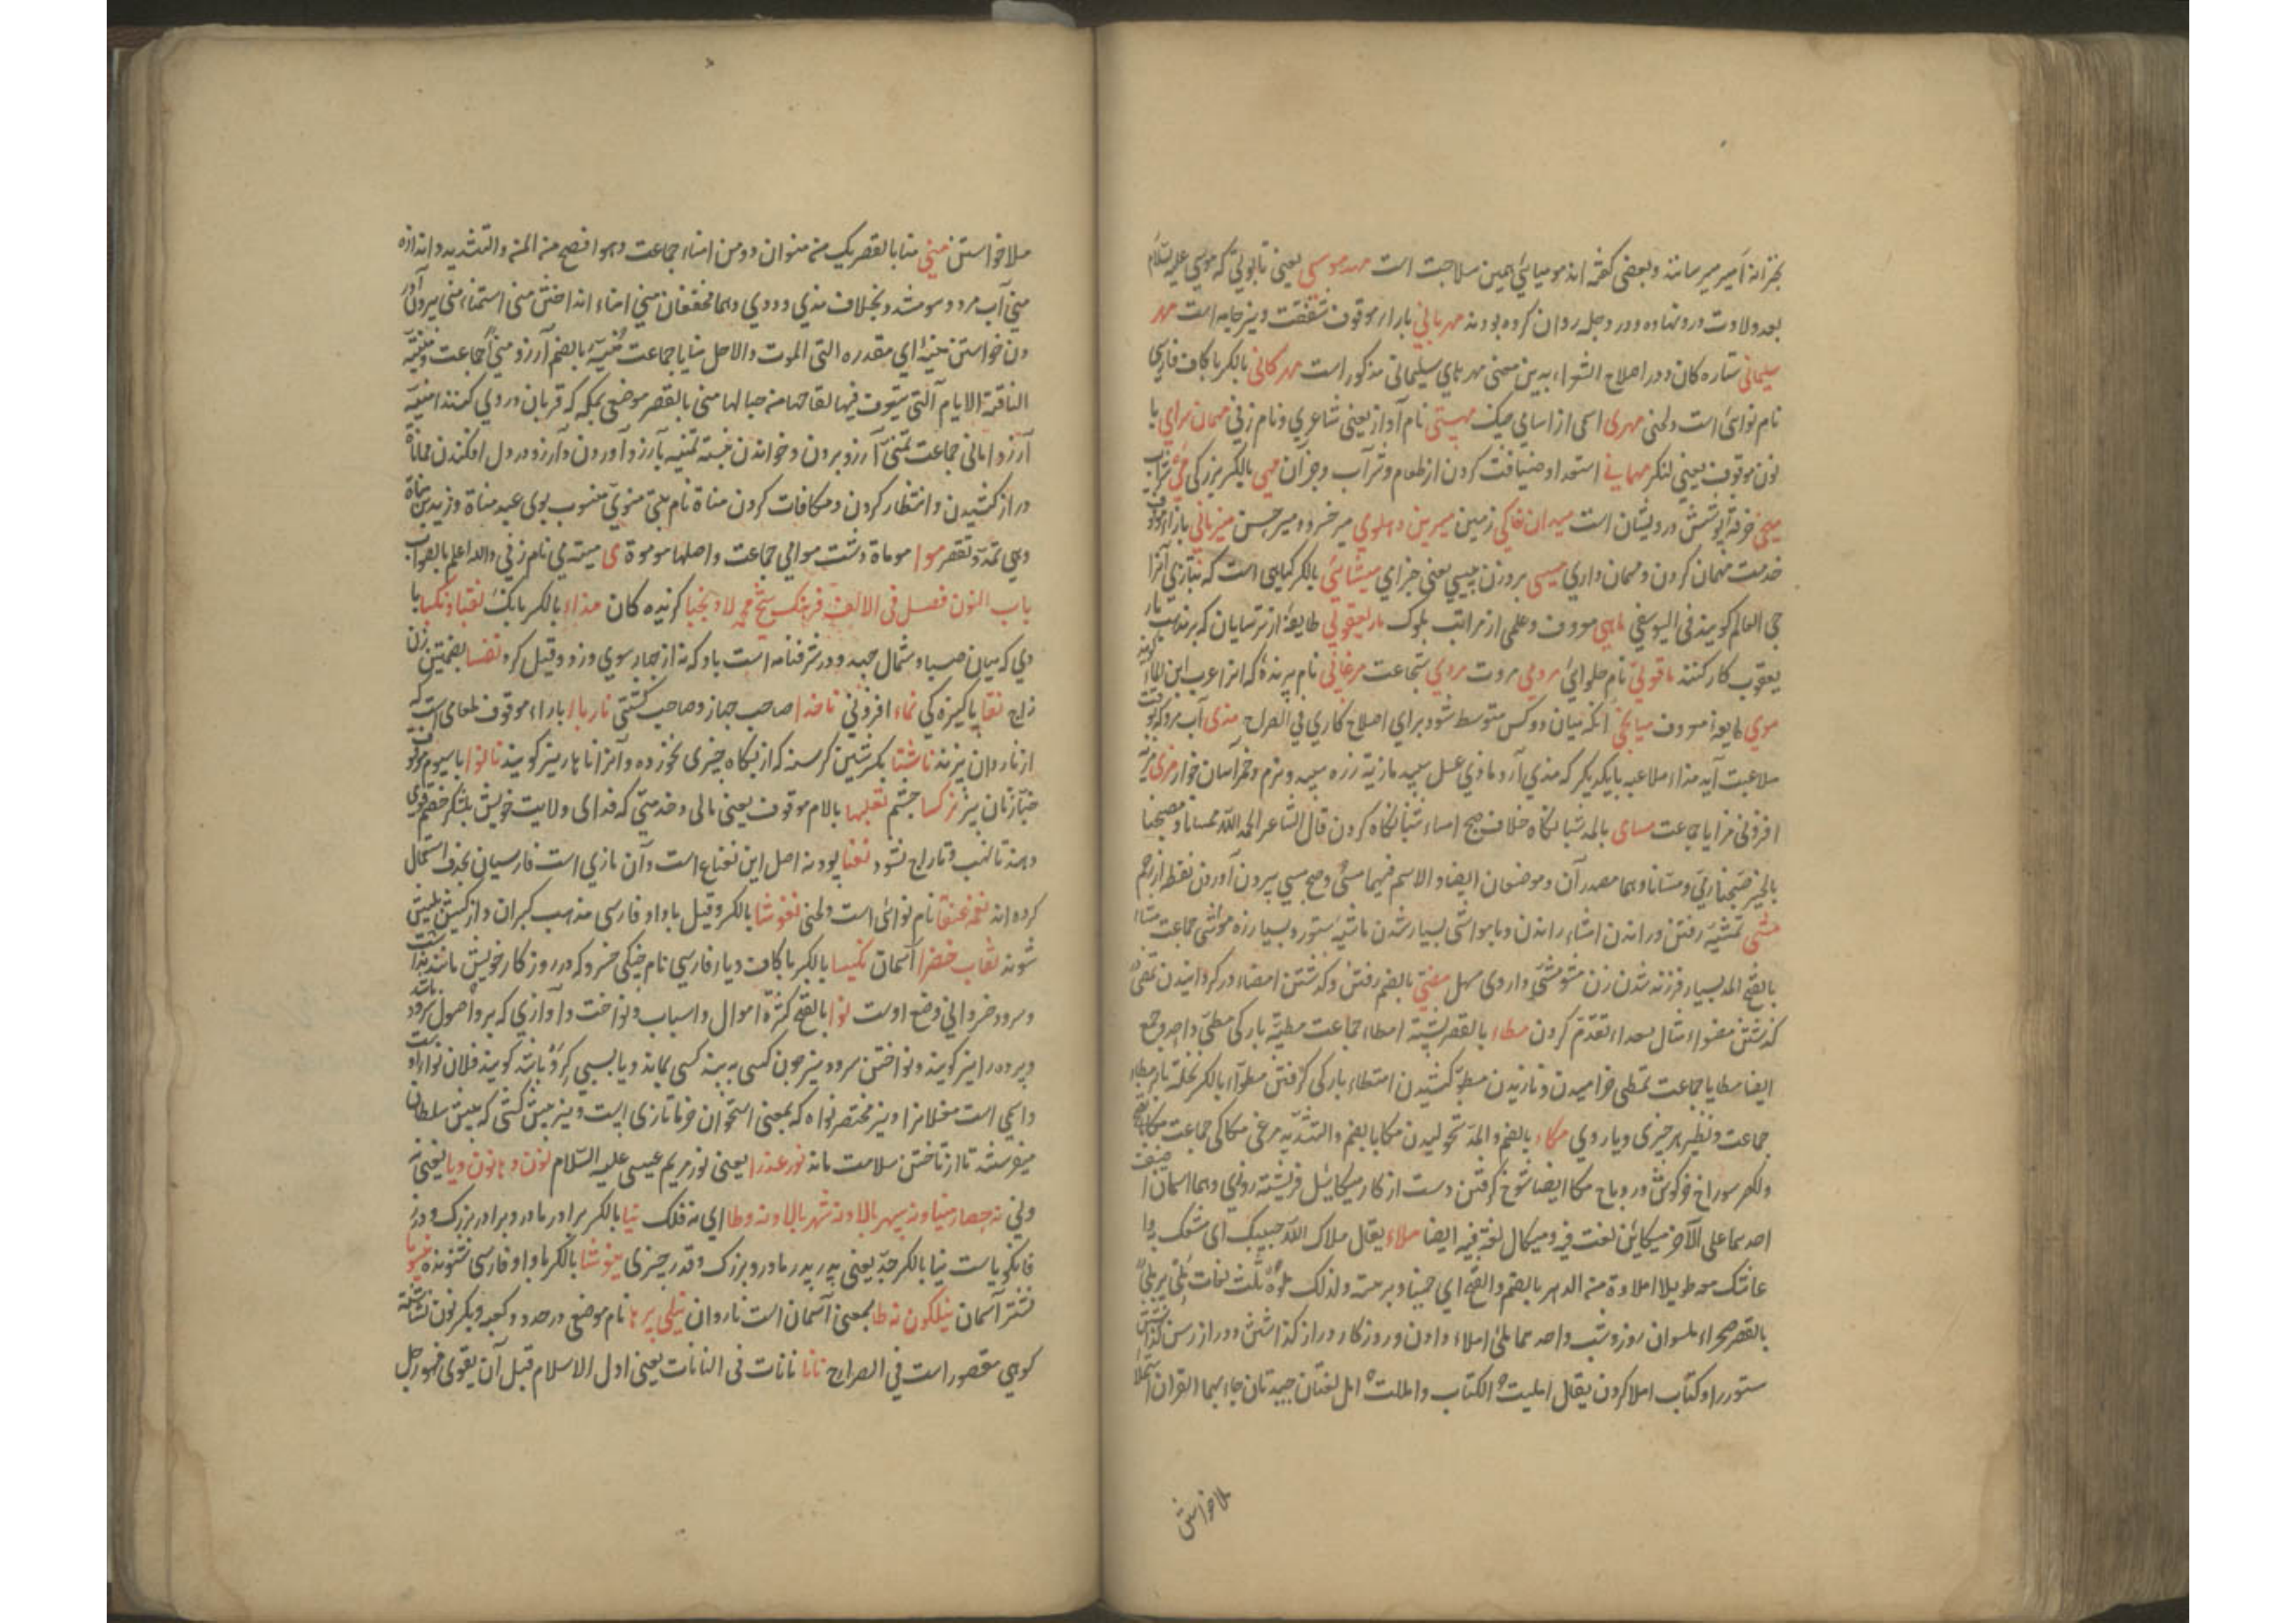 بخزانه امیر میرسانند و بعضی گفته اند مومیائی همین سلاجت است مهد موسی یعنی تابوتی که موسی علیه السلام
بعد ولادت درو نهاده و در دجله روان کرده بودند مهربانی بارا موقوف شفقت و نیز جامه است مهر
سلیمانی ستاره کان و در اصلاح الشعراء بدین معنی مهرهای سلیمانی مذکور است مهرکانی بالکسر با کاف فارسی
نام نوائی است ولحنی مهری اسمی از اسامی چنگ مهستی نام آواز یعنی شاعری و نام زنی مهمان سرای با
نون موقوف یعنی لنگر مهمانی استعداد ضیافت کردن از طعام و شراب و جز آن مهی بالکسر بزرکی می شراب
میخی خرقه پوشش درویشان است میدان خاکی زمین میرین و پهلوی میر خسرو و میر حسن میزبانی بازاء موقوف
خدمت مهمان کردن و مهمان داری میسی بر وزن چیسی یعنی چزای میشائی بالکسر گیاهی است که بتازی آنرا
حی العالم گویند فی الیوسفی ماهی معروف و علمی از مراتب ملوک مار یعقوبی طایفهٔ از ترسایان که بر مذهب مار
یعقوب کار کنند ماقوتی نام حلوای مردمی مروت مردی شجاعت مرغابی نام پرنده که آنرا عرب ابن الماء گویند
موی طایفهٔ معروف میانجی آنکه میان دو کس متوسط شود برای اصلاح کاری فی الصراح مذی آب مرد که بوقت
ملاعبت آید مذاء ملاعبه بایکدیکر که مذی آرد ماذی عسل سپید ماذیة زره سپید و نرم و خمر آسان خوار مزی مزیة
افزونی مزایا جماعت مسای بالمد شبانگاه خلاف صبح امساء شبانگاه کردن قال الشاعر الحمد لله ممسانا و مصبحنا
بالخیر صبحنا ربی و مسانا و هما مصدر آن و موضعان ایضا و الاسم فیهما مسی و صبح مسی بیرون آوردن نطفه از رحم
مشی تمشیة رفتن و راندن امشاء راندن و با مواشی بسیار شدن ماشیه ستور و بسیار زه مواشی جماعت مشاء
بالفتح و المد بسیار فرزند شدن زن مشو مشی داروی سهل مضی بالضم رفتن و گذشتن امضاء در گردانیدن تمضی
گذشتن مضواء مثال سعداء تقدم کردن مطاء بالقصر پشت امطاء جماعت مطیة بارکی مطی واحد و جمع
ایضا مطایا جماعت تمطی خرامیدن و نازیدن مطو کشیدن امتطاء بارکی گرفتن
جماعت و نظیر هر چیزی و یار وی مکاء بالضم و المد شخولیدن مکا بالضم و التشدید مرغی مکاکی جماعت مکا بالفتح
والقصر سوراخ خرگوش و روباه مکا ایضا شوخ گرفتن دست از کار میکائیل فریشته روزی و هما اسمان اضیف
احدهما علی الآخر میکائین لغت فیه و میکال لغة فیه ایضا ملاء یقال ملاک الله حبیبک ای متعک به و
عاشک معه طویلا ملاوة من الدهر بالضم و الفتح ای حینا و برهة و لذلک ملوة ثلث لغات ملی
بالقصر صحراء ملوان روز و شب واحدهما ملی املاء دادن و روزگار دراز گذاشتن و دراز رسن گذاشتن
ستور را و کتاب املا کردن یقال املیت الکتاب و امللت اهل لغتان جیدتان جاء بهما القرآن استملاء
ملاخواستن
ملا خواستن منی منا بالقصر یک من منوان دو من امناء جماعت و هو افصح من المن و التشدید و اندازه
منی آب مرد و هو مشدد بخلاف مذی و ودی و هما مخففان منی امناء انداختن منی استمناء منی بیرون آور
دن خواستن منیة ای مقدره التی الموت والاجل منایا جماعت منیة بالضم آرزو منی جماعت و منیة
الناقة الایام التی یتعرف فیها لقاحها من حیالها منی بالقصر موضع بمکه که قربان در وی کنند امنیة
آرزو امانی جماعت تمنی آرزو بردن و خواندن تمنیه بآرزو آوردن و آرزو در دل افکندن مماناة
دراز کشیدن و انتظار کردن و مکافات کردن مناة نام بتی منوی منسوب بوی عبد مناة و زید بن مناة
و هی تمد و تقصر موا موماة دشت موامی جماعت و اصلها موموة می میته می نام زنی والله اعلم بالصواب
باب النون فصل فی الالف فرهنک شیخ محمد لاد نجبا گزیده کان نداء بالکسر بانک نقبا و نکبا با
دی که میان صبا و شمال جهد و در شرفنامه است باد که نه از چهار سوی وزد و قیل کرو نفسا بضمتین زن
زاج نقا پاکیزه کی نماء افزونی ناخدا صاحب جهاز و صاحب کشتی نار با با راء موقوف طعامی است که
از ناردان پزند ناشتا بکسر شین گرسنه که از پگاه چیزی نخورده و آنرا ناهار نیز گویند نانوا با سیوم موقوف
خباز نان پز نرکسا چشم نعلبها بالام موقوف یعنی مالی و خدمتی که فدای ولایت خویش بلشکر خصم قوی
دهند تا نهب و تاراج نشود نعنا پودنه اصل این نعناع است و آن تازی است فارسیان بحذف استعمال
کرده اند نغمه عنقا نام نوائی است ولحنی نغوشا بالکسر و قیل با واو فارسی مذهب گبران و از کیشی بکیشی
شوند نقاب خضرا آسمان نکیسا بالکسر با کاف و یاء فارسی نام چنگی خسرو که در روز کار خویش مانند نداشت
و سرود خسروانی وضع اوست نوا بالفتح کثرة اموال و اسباب و نواخت و آوازی که بر اصول سرود باشد
و پرده را نیز گویند و نواختن سرود و نیز چون کسی به بند کسی بماند و یا بسببی کرو باشد گویند فلان نوا او
داسمی است مغلانرا و نیز مختصر نواه که بمعنی استخوان خرما تازی است و نیز پیش کشی که پیش سلطان
میفرستند تا از تاختن سلامت ماند نور عذرا یعنی نور مریم عیسی علیه السلام نون و هانون و یا یعنی نه
ولی نه حصار مینا و نه سپهر بالا و نه شهر بالا و نه وطا ای نه فلک نیا بالکسر برادر مادر و برادر بزرک و در
فانکویاست نیا بالکسر جد یعنی پدر پدر و مادر و بزرک و قدر چیزی نیوشا بالکسر با واو فارسی شنونده
آسمان نیلگون نه طا بمعنی آسمان است ناروان نیلی پرها نام موضع در حدود کعبه و بکسر نون
کوهی مقصور است فی الصراح نانا نانات فی النانات یعنی اول الاسلام قبل آن یقوی فهو رجل